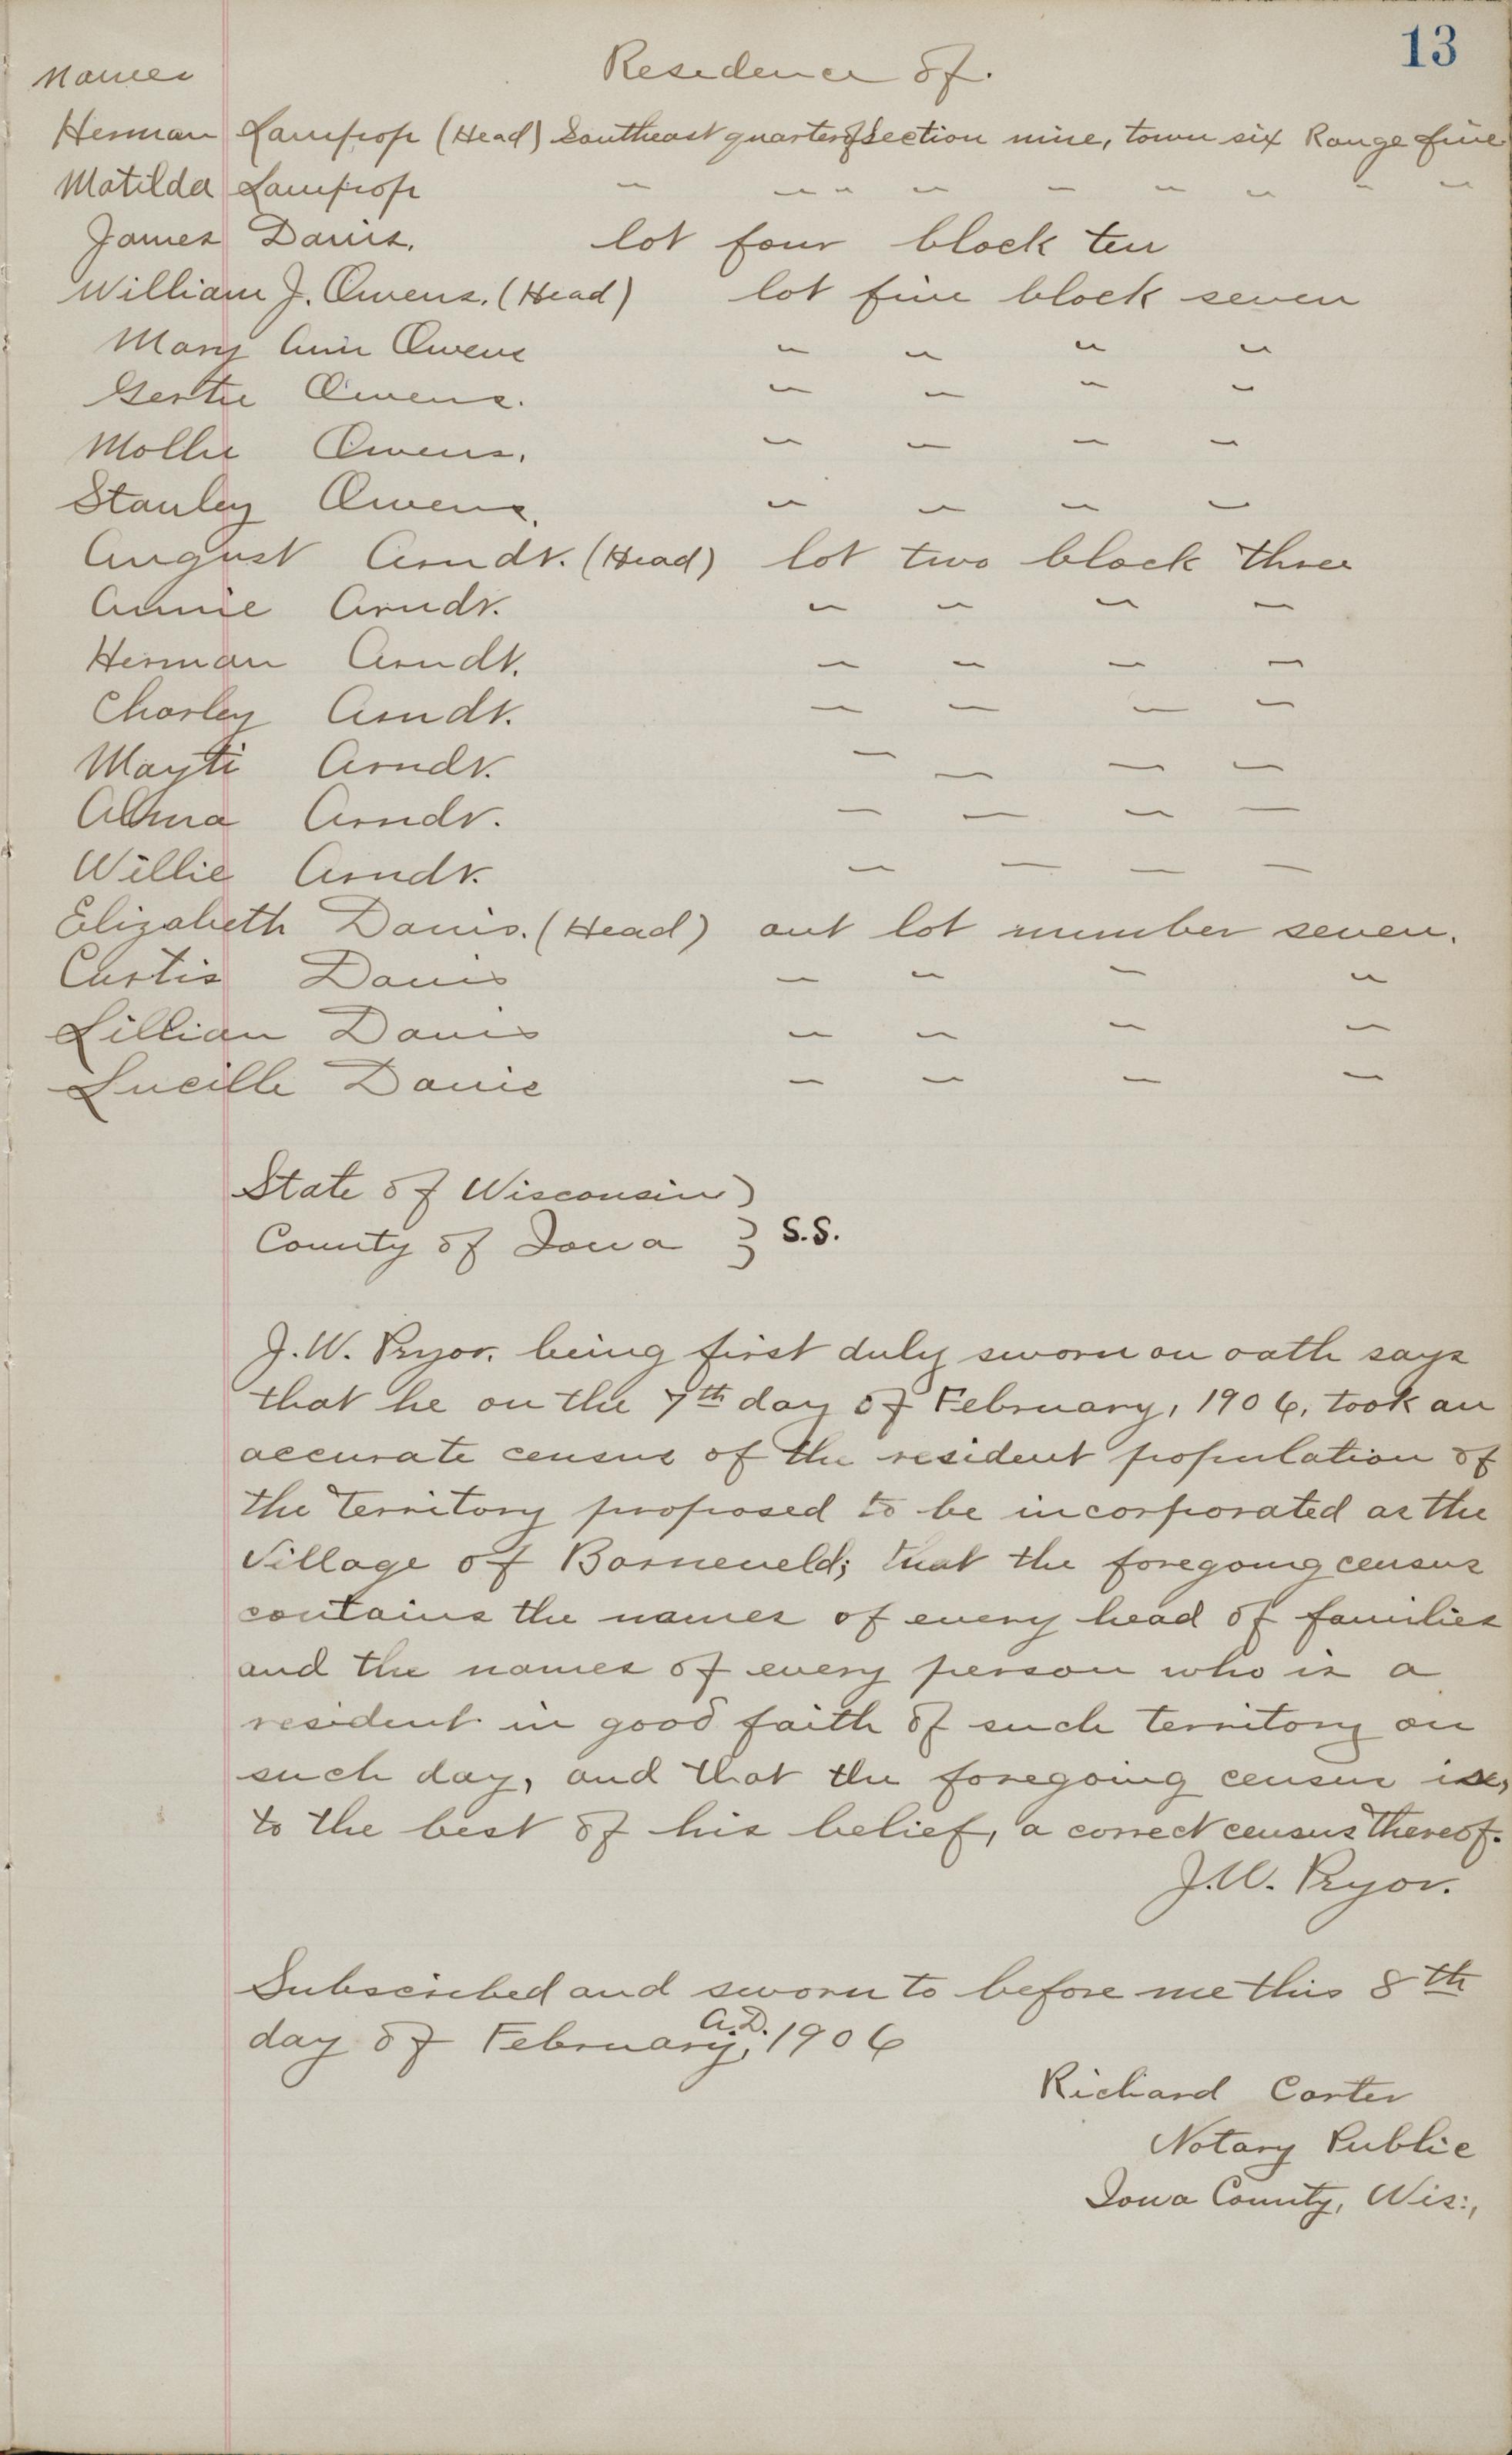 13
Names Residence of.
Herman Lampop (Head) Southeast quarter of section nine, town six Range five
Matilda Lampop " " " " " " " " "
James Davis. lot four block ten
William J. Owens. (Head) lot five block seven
Mary Ann Owens " " " "
Gertie Owens. " " " "
Mollie Owens. " " " "
Stanley Owens. " " " "
August Arndt. (Head) lot two block three
Annie Arndt. " " " "
Herman Arndt. " " " "
Charley Arndt. " " " "
Mayti Arndt. " " " "
Alma Arndt. " " " "
Willie Arndt. " " " "
Elizabeth Davis. (Head) out lot number seven.
Curtis Davis " " " "
Lillian Davis " " " "
Lucille Davis " " " "
State of Wisconsin )
County of Iowa } S.S.
J.W. Pryor. being first duly sworn on oath says
that he on the 7th day of February, 1906, took an
accurate census of the resident population of
the territory proposed to be incorporated as the
Village of Barneveld; that the foregoing census
contains the names of every head of families
and the names of every person who is a
resident in good faith of such territory on
such day, and that the foregoing census is,
to the best of his belief, a correct census thereof.
J.W. Pryor.
Subscribed and sworn to before me this 8th
day of February, A.D. 1906
Richard Carter
Notary Public
Iowa County, Wis.,